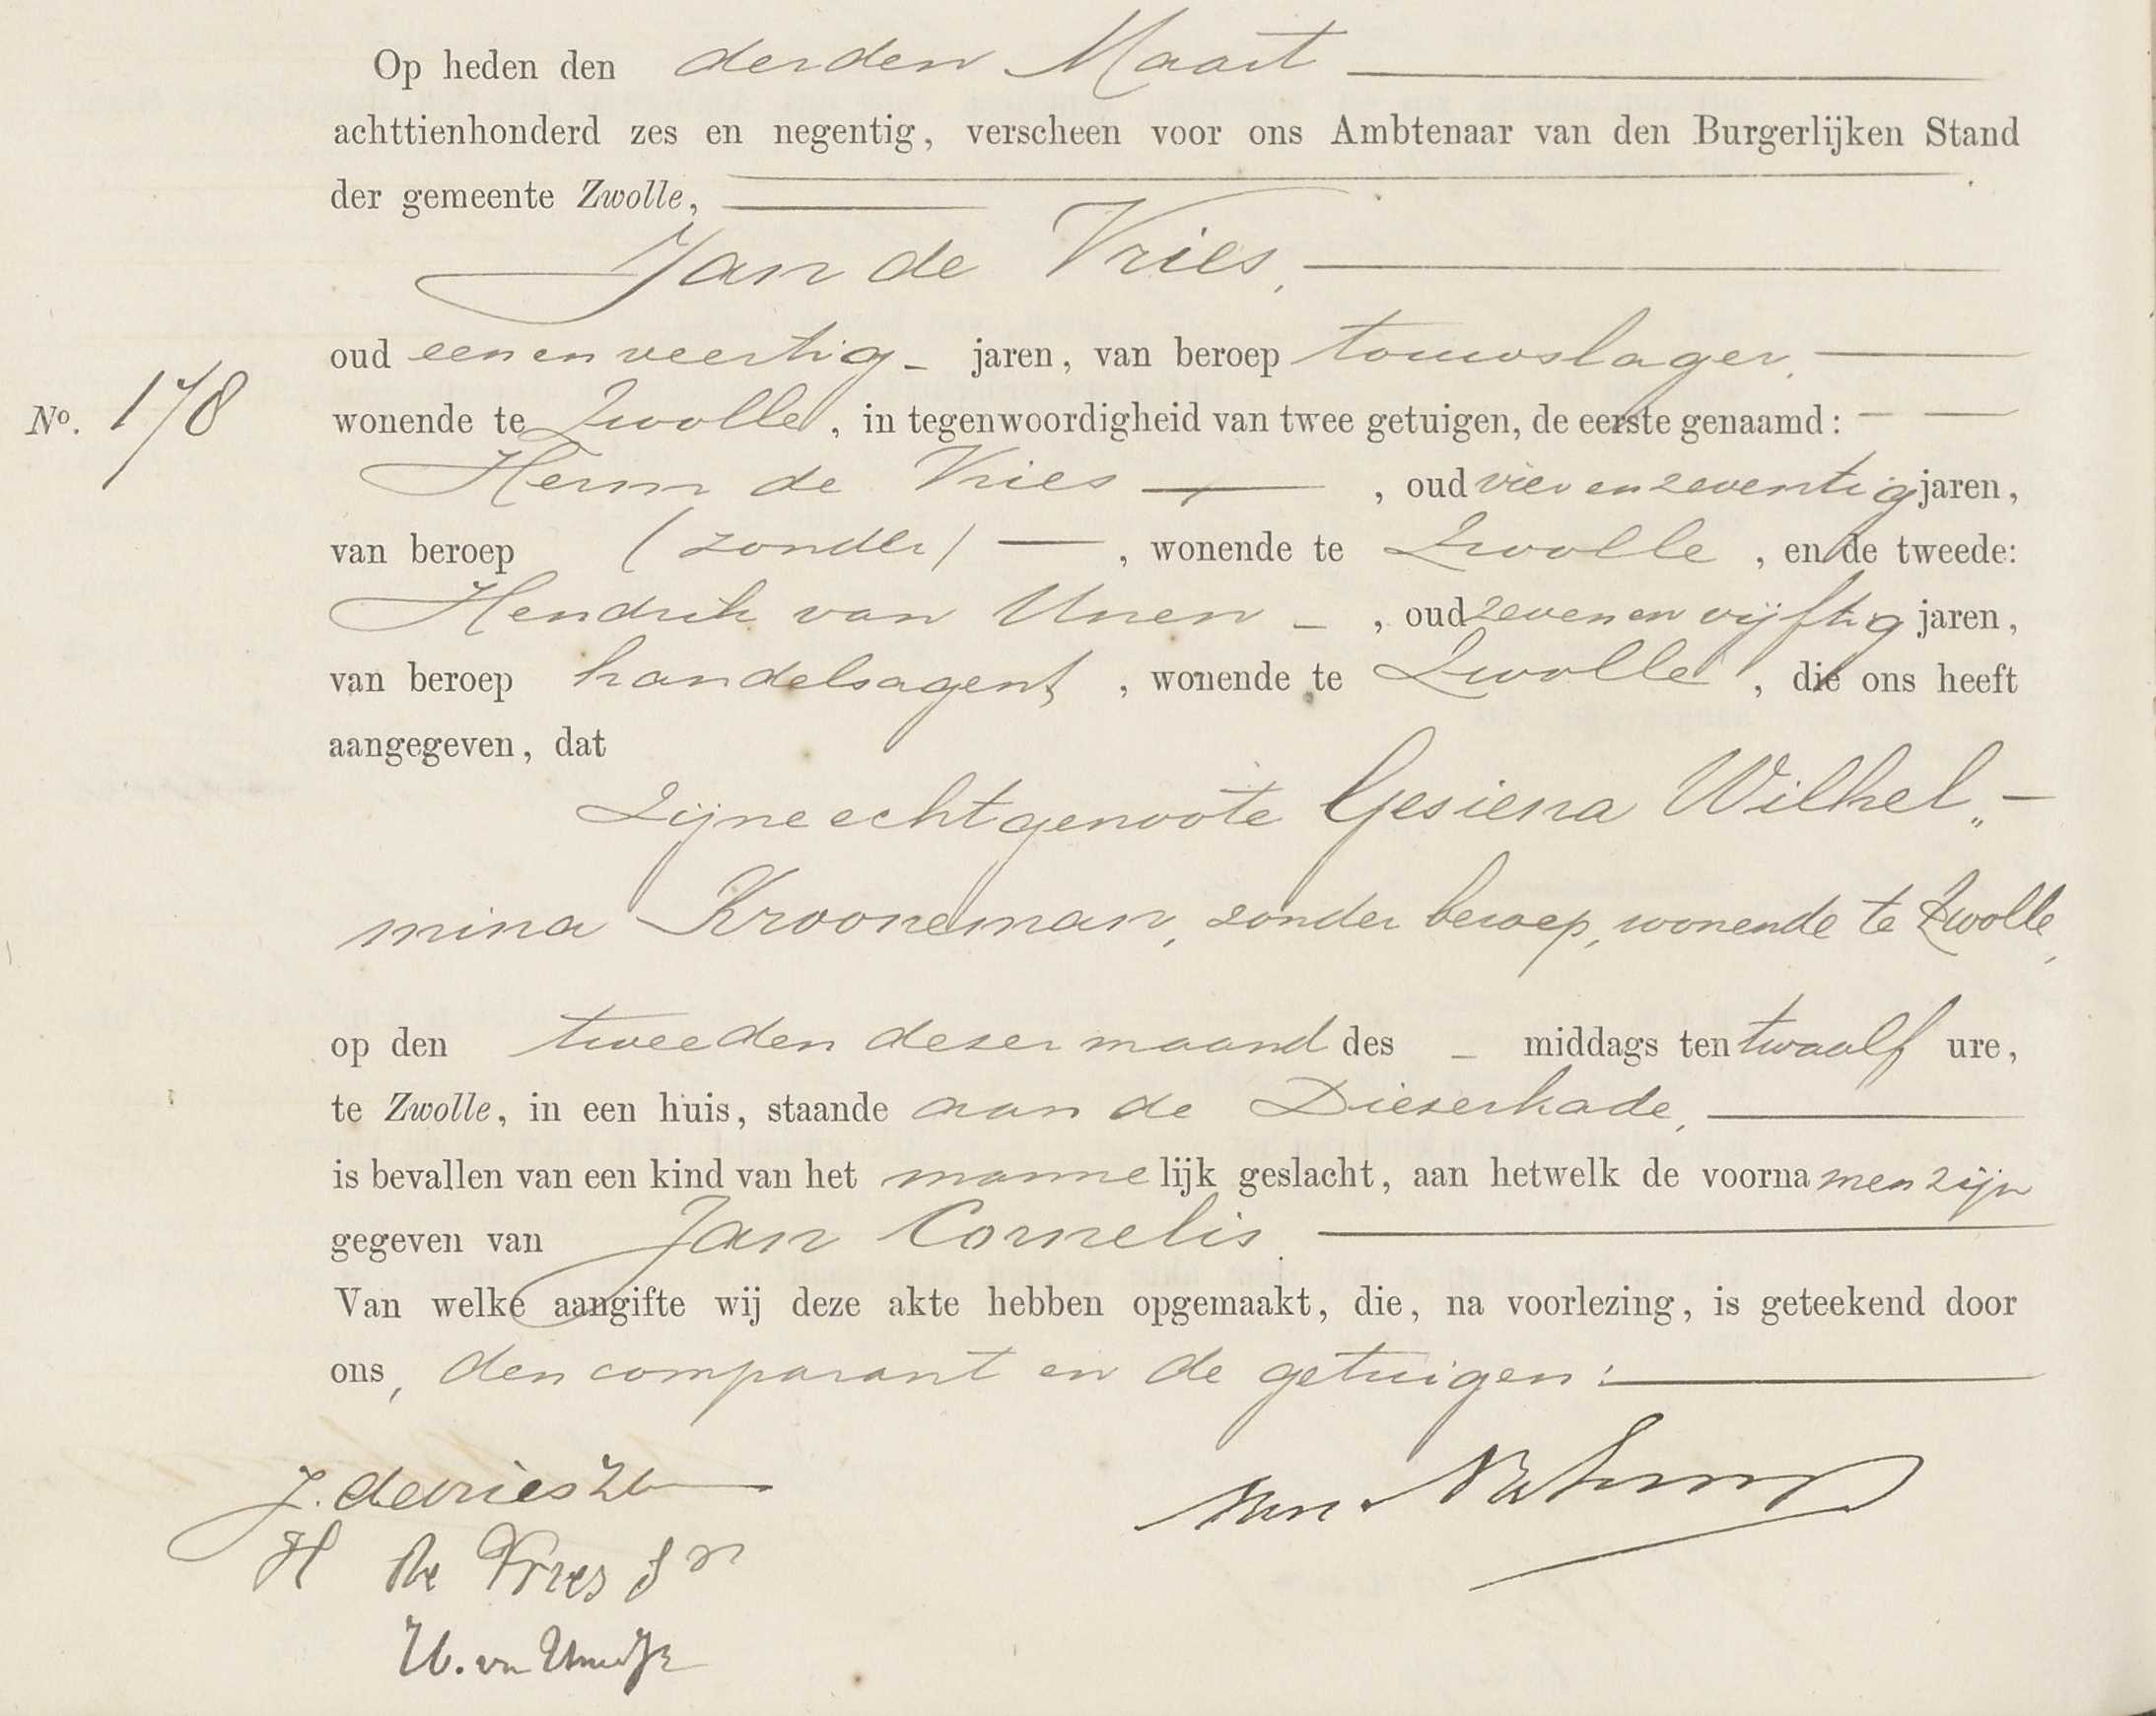 Op heden den derden Maart
achttienhonderd zes en negentig, verscheen voor ons Ambtenaar van den Burgerlijken Stand
der gemeente Zwolle,
Jan de Vries,
oud een en veertig jaren, van beroep touwslager,
No. 178
wonende te Zwolle, in tegenwoordigheid van twee getuigen, de eerste genaamd:
Herm de Vries, oud vier en zeventig jaren,
van beroep (zonder), wonende te Zwolle, en de tweede:
Hendrik van Unen, oud zeven en vijftig jaren,
van beroep handelsagent, wonende te Zwolle, die ons heeft
aangegeven, dat
zijne echtgenoote Gesiena Wilhel„
mina Krooneman, zonder beroep, wonende te Zwolle,
op den tweeden dezer maand des middags ten twaalf ure,
te Zwolle, in een huis, staande aan de Diezerkade,
is bevallen van een kind van het mannelijk geslacht, aan hetwelk de voornamen zijn
gegeven van Jan Cornelis.
Van welke aangifte wij deze akte hebben opgemaakt, die, na voorlezing, is geteekend door
ons, den comparant en de getuigen:
J. de Vries
H de Vries Sr